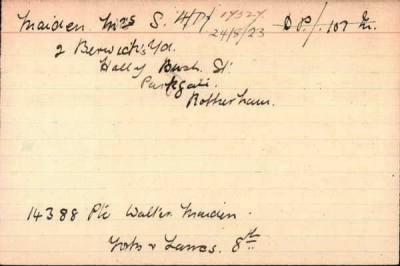 Maiden Mrs S. 17324 D.P./107 M.
24/5/23
2 Berwick's Yd.
Holly Bush St.
Parkgate.
Rotherham.
14388 Pte Walter Maiden.
Yorks & Lancs. 8th